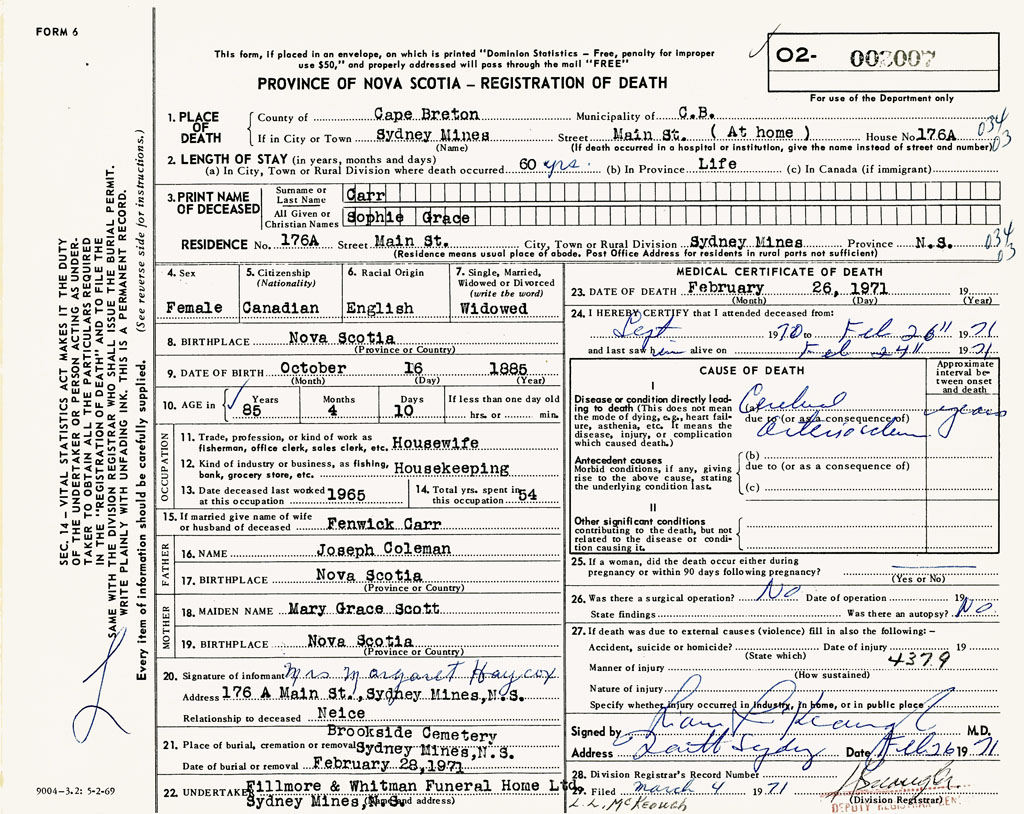 FORM 6
This form, if placed in an envelope, on which is printed "Dominion Statistics – Free, penalty for improper
use $50," and properly addressed will pass through the mail "FREE"
PROVINCE OF NOVA SCOTIA – REGISTRATION OF DEATH
O2- 002007
For use of the Department only
SEC. 14 – VITAL STATISTICS ACT MAKES IT THE DUTY
OF THE UNDERTAKER OR PERSON ACTING AS UNDER-
TAKER TO OBTAIN ALL THE PARTICULARS REQUIRED
IN THE "REGISTRATION OF DEATH" AND TO FILE THE
SAME WITH THE DIVISION REGISTRAR WHO SHALL ISSUE THE BURIAL PERMIT.
WRITE PLAINLY WITH UNFADING INK. THIS IS A PERMANENT RECORD.
Every item of information should be carefully supplied. (See reverse side for instructions.)
1. PLACE OF DEATH
County of Cape Breton Municipality of C.B.
If in City or Town Sydney Mines Street Main St. ( At home ) House No. 176A 034
(Name) (If death occurred in a hospital or institution, give the name instead of street and number) 03
2. LENGTH OF STAY (in years, months and days)
(a) In City, Town or Rural Division where death occurred 60 yrs. (b) In Province Life (c) In Canada (if immigrant)
3. PRINT NAME OF DECEASED
Surname or Last Name Carr
All Given or Christian Names Sophie Grace
RESIDENCE No. 176A Street Main St. City, Town or Rural Division Sydney Mines Province N.S. 034
(Residence means usual place of abode. Post Office Address for residents in rural parts not sufficient) 03
4. Sex
Female
5. Citizenship (Nationality)
Canadian
6. Racial Origin
English
7. Single, Married, Widowed or Divorced (write the word)
Widowed
8. BIRTHPLACE Nova Scotia
(Province or Country)
9. DATE OF BIRTH October 16 1885
(Month) (Day) (Year)
10. AGE in Years Months Days If less than one day old
85 4 10 hrs. or min.
OCCUPATION
11. Trade, profession, or kind of work as
fisherman, office clerk, sales clerk, etc. Housewife
12. Kind of industry or business, as fishing,
bank, grocery store, etc. Housekeeping
13. Date deceased last worked at this occupation 1965
14. Total yrs. spent in this occupation 54
15. If married give name of wife
or husband of deceased Fenwick Carr
FATHER
16. NAME Joseph Coleman
17. BIRTHPLACE Nova Scotia
(Province or Country)
MOTHER
18. MAIDEN NAME Mary Grace Scott
19. BIRTHPLACE Nova Scotia
(Province or Country)
20. Signature of informant Mrs Margaret Haycox
Address 176 A Main St., Sydney Mines, N.S.
Relationship to deceased Neice
Brookside Cemetery
21. Place of burial, cremation or removal Sydney Mines, N.S.
Date of burial or removal February 28, 1971
22. UNDERTAKER Fillmore & Whitman Funeral Home Ltd.
Sydney Mines, (Name and address)
9004–3.2: 5-2-69
MEDICAL CERTIFICATE OF DEATH
23. DATE OF DEATH February 26, 1971 19
(Month) (Day) (Year)
24. I HEREBY CERTIFY that I attended deceased from:
Sept 1970 to Feb 26" 1971
and last saw him alive on Feb 24" 1971
CAUSE OF DEATH
Approximate interval between onset and death
I
Disease or condition directly leading to death (This does not mean
the mode of dying, e.g., heart failure, asthenia, etc. It means the
disease, injury, or complication
which caused death.)
(a) Cerebral
due to (or as a consequence of) years
Antecedent causes
Morbid conditions, if any, giving
rise to the above cause, stating
the underlying condition last.
(b)
due to (or as a consequence of)
(c)
II
Other significant conditions
contributing to the death, but not
related to the disease or condition causing it.
25. If a woman, did the death occur either during
pregnancy or within 90 days following pregnancy?
(Yes or No)
26. Was there a surgical operation? No Date of operation 19
State findings Was there an autopsy? No
27. If death was due to external causes (violence) fill in also the following: –
Accident, suicide or homicide? Date of injury 19
(State which) 4379
Manner of injury
(How sustained)
Nature of injury
Specify whether injury occurred in industry, in home, or in public place
Signed by M.D.
Address Date Feb 26 1971
28. Division Registrar's Record Number
29. Filed March 4 1971
(Division Registrar)
L.L. McKeough
DEPUTY REGISTRAR GEN.